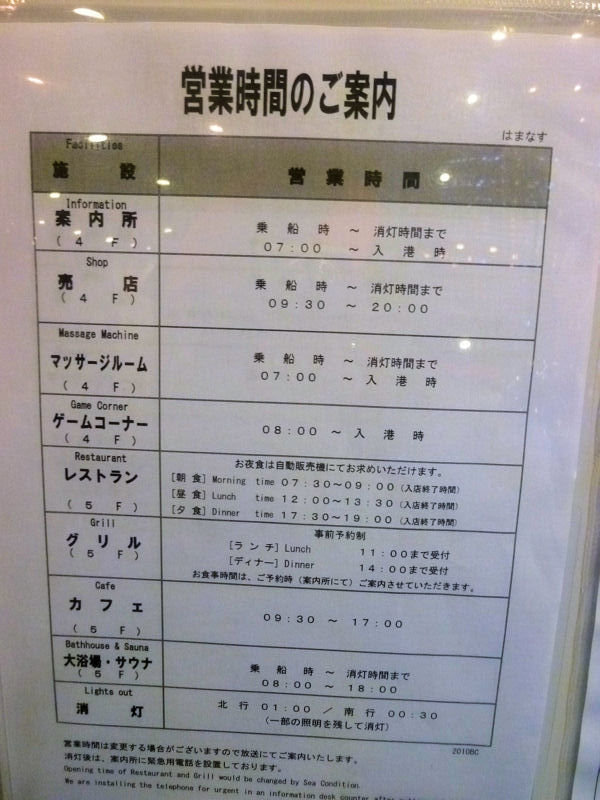 営業時間のご案内
はまなす
Facilities
施設 営業時間
Information
案内所
(4F)
乗船時 ～ 消灯時間まで
07:00 ～ 入港時
Shop
売店
(4F)
乗船時 ～ 消灯時間まで
09:30 ～ 20:00
Massage Machine
マッサージルーム
(4F)
乗船時 ～ 消灯時間まで
07:00 ～ 入港時
Game Corner
ゲームコーナー
(4F)
08:00 ～ 入港時
Restaurant
レストラン
(5F)
お夜食は自動販売機にてお求めいただけます。
[朝食] Morning time 07:30～09:00 (入店終了時間)
[昼食] Lunch time 12:00～13:30 (入店終了時間)
[夕食] Dinner time 17:30～19:00 (入店終了時間)
Grill
グリル
(5F)
事前予約制
[ランチ] Lunch 11:00まで受付
[ディナー] Dinner 14:00まで受付
お食事時間は、ご予約時（案内所にて）ご案内させていただきます。
Cafe
カフェ
(5F)
09:30 ～ 17:00
Bathhouse & Sauna
大浴場・サウナ
(5F)
乗船時 ～ 消灯時間まで
08:00 ～ 18:00
Lights out
消灯
北行 01:00 / 南行 00:30
(一部の照明を残して消灯)
2010BC
営業時間は変更する場合がございますので放送にてご案内いたします。
消灯後は、案内所に緊急用電話を設置しております。
Opening time of Restaurant and Grill would be changed by Sea Condition.
We are installing the telephone for urgent in an information desk counter after